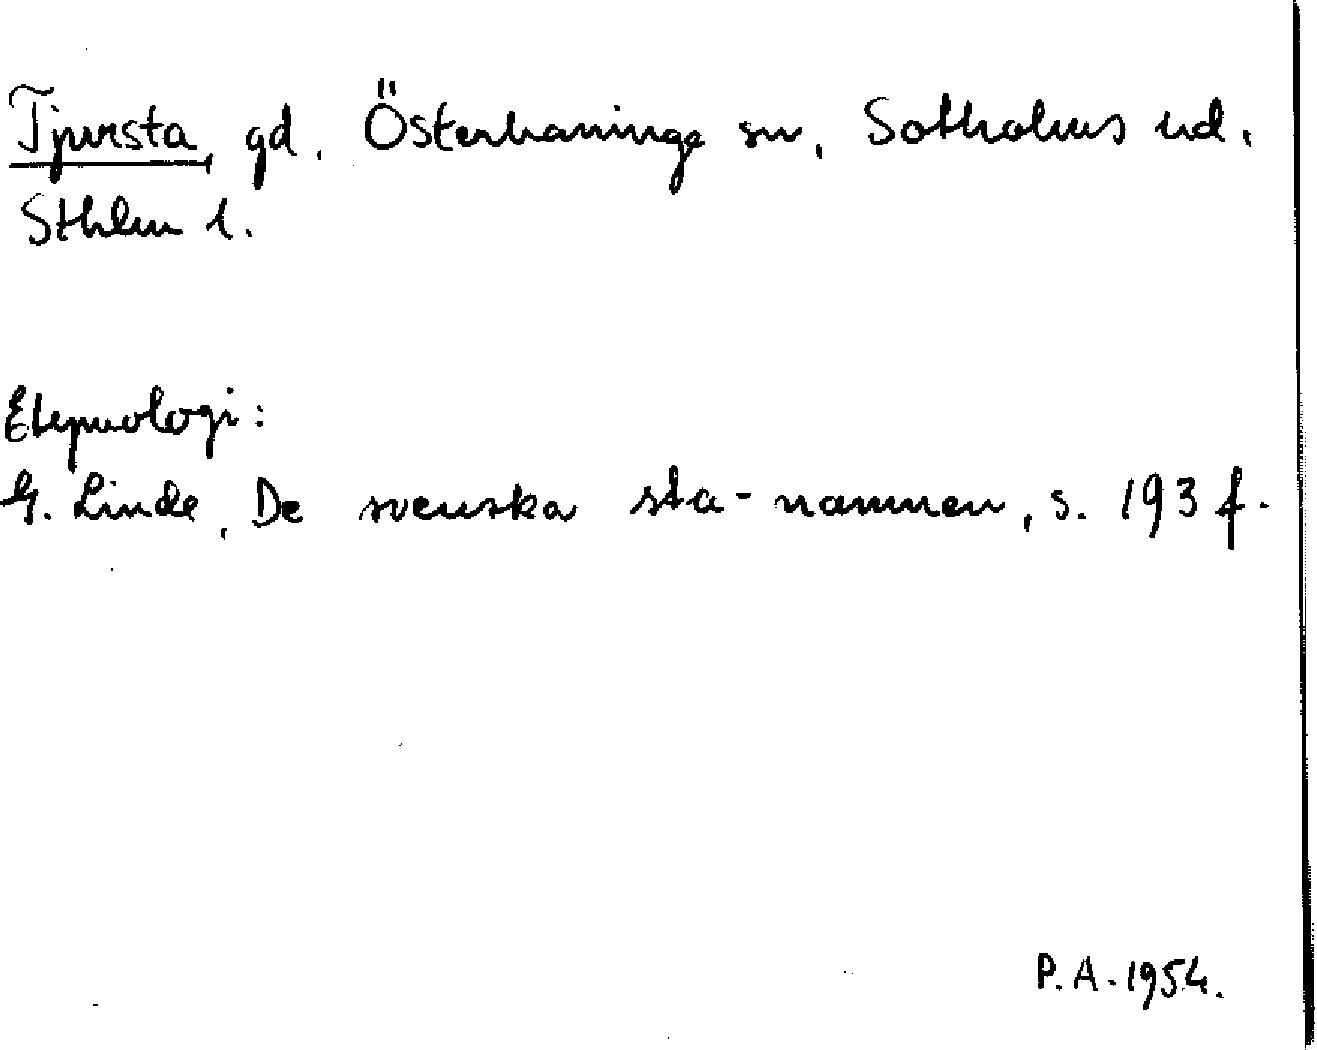 Tjursta, gd, Österhaninge sn, Sotholms hd,
Sthlm l.
Etymologi:
G. Linde, De svenska sta-namnen, s. 193 f.
P.A. 1954.